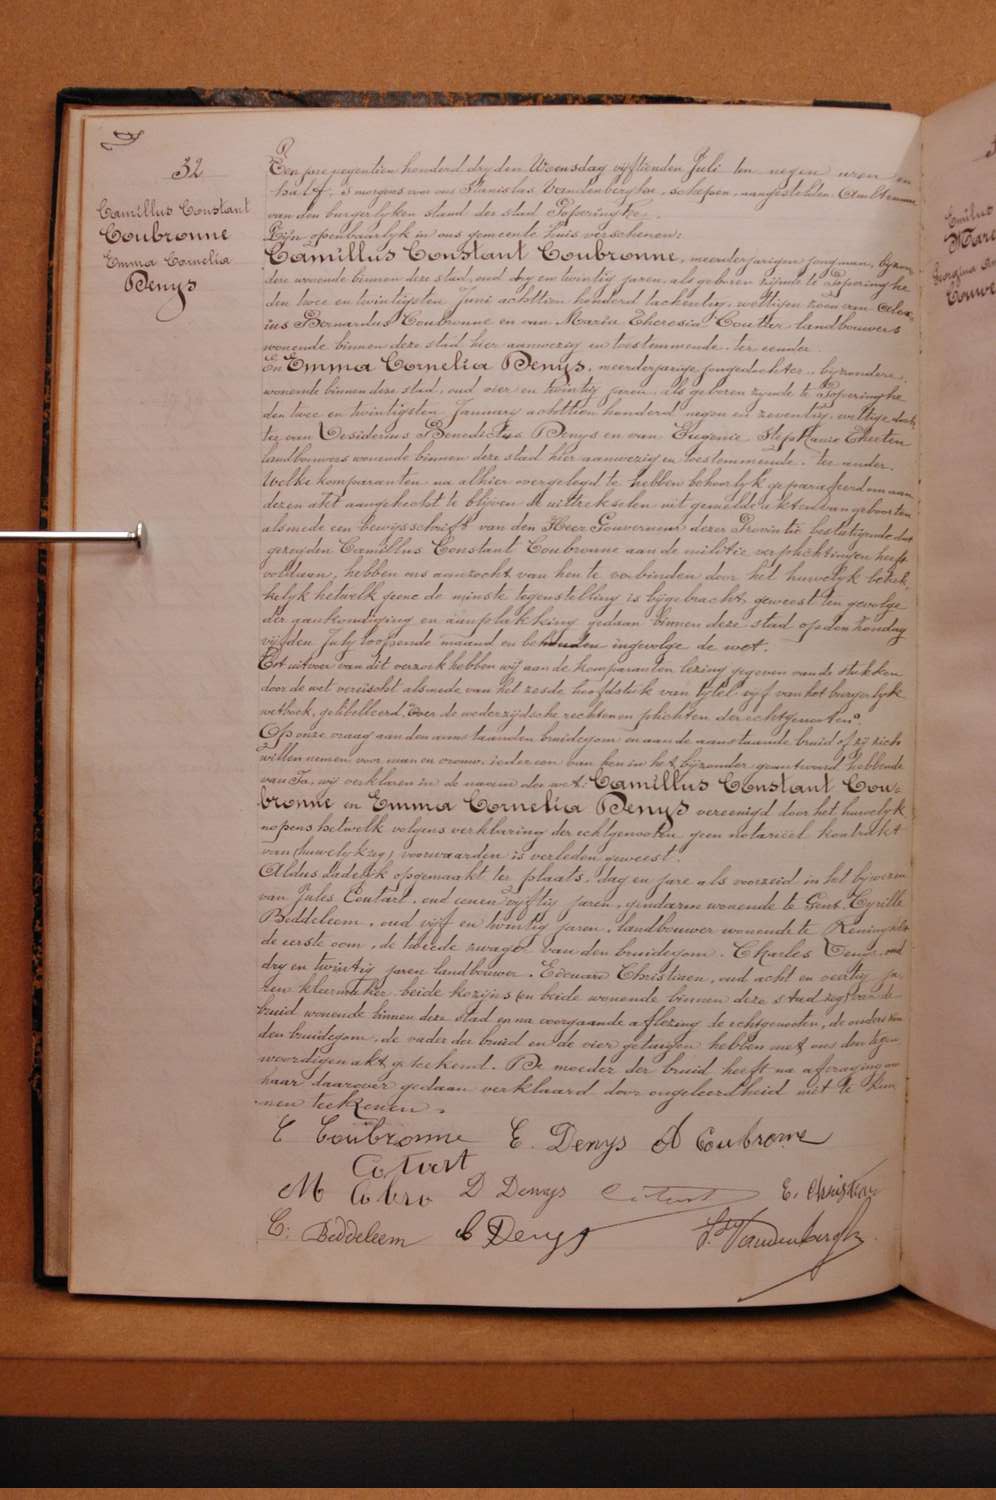 32
Camillus Constant
Coubronne
Emma Cornelia
Denys
Een jare negentien honderd dry den Woensdag vijftienden Juli ten negen uren en
half, 's morgens voor ons Stanislas Vandenberghe, schepen, aangestelden Ambtenaar
van den burgerlyken stand der stad Poperinghe.
Zijn openbaarlyk in ons gemeente huis verschenen:
Camillus Constant Coubronne, meerderjarigen jongman, byzon-
dere wonende binnen deze stad, oud dry en twintig jaren, als geboren zijnde te Poperinghe
den twee en twintigsten Juni achttien honderd tachentig, wettigen zoon van Alex-
ius Bernardus Coubronne en van Maria Theresia Coutter landbouwers
wonende binnen deze stad hier aanwezig en toestemmende. ter eender
En Emma Cornelia Denys, meerderjarige jongedochter, byzondere,
wonende binnen deze stad, oud vier en twintig jaren, als geboren zynde te Poperinghe
den twee en twintigsten January achttien honderd negen en zeventig, wettige doch-
ter van Desiderius Benedictus Denys en van Eugenie Stephanie Theeten
landbouwers wonende binnen deze stad hier aanwezig en toestemmende. ter ander.
Welke komparanten na alhier overgelegd te hebben behoorlyk geparafeerd om aan
dezen akt aangehecht te blijven de uittrekselen uit gemelde akten van geboorten
alsmede een bewijsschrift van den Heer Gouverneur dezer Provintie bestatigende dat
gezegden Camillus Constant Coubronne aan de militie verplichtingen heeft
voldaan, hebben ons aanzocht van hen te verbinden door het huwelyk betrek-
kelyk hetwelk geene de minste tegenstelling is bijgebracht geweest ten gevolge
der aankondiging en aanplakking gedaan binnen deze stad op den Zondag
vijfden July loopende maand en behouden ingevolge de wet.
Tot uitvoer van dit verzoek hebben wij aan de komparanten lezing gegeven van de stukken
door de wet vereischt alsmede van het zesde hoofdstuk van tytel vyf van het burgerlyk
wetboek, getibelleerd, Over de wederzijdsche rechten en plichten der echtgenooten.
Op onze vraag aan den aanstaanden bruidegom en aan de aanstaande bruid of zij zich
willen nemen voor man en vrouw, iedereen van hen in het byzonder geantwoord hebbende
van Ja, wij verklaren in de naam der wet: Camillus Constant Cou-
bronne en Emma Cornelia Denys vereenigd door het huwelyk
nopens hetwelk volgens verklaring der echtgenooten geen notarieel kontrakt
van huwelykzeg voorwaarden is verleden geweest.
Aldus dadelyk opgemaakt ter plaats, dag en jare als voorzeid in het bywezen
van Jules Coutart, oud eenen vijftig jaren, gendarm wonende te Gent, Cyrille
Beddeleem, oud vijf en twintig jaren, landbouwer wonende te Reninghelst
de eerste oom, de tweede zwager van den bruidegom. Charles Denys, oud
dry en twintig jaren landbouwer. Edouard Christiaen, oud acht en veertig ja-
ren kleermaker beide kozijns en beide wonende binnen deze stad van de
bruid wonende binnen deze stad en na voorgaande aflezing de echtgenooten, de ouders van
den bruidegom, de vader der bruid en de vier getuigen hebben met ons den tegen-
woordigen akt geteekend. De moeder der bruid heeft na afvraging aan
haar daarover gedaan verklaard door ongeleerdheid niet te kun-
nen teekenen.
C Coubronne E. Denys A Coubronne
Cotvert
M Cobro D Denys E. Christiaen
C: Beddeleem C Denys St. Vandenberghe